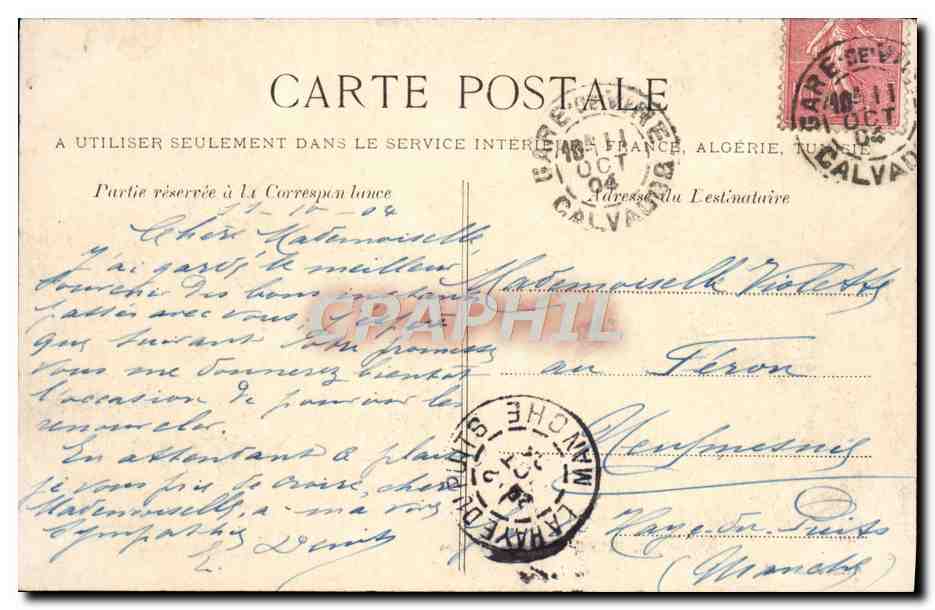 CARTE POSTALE
A UTILISER SEULEMENT DANS LE SERVICE INTÉRIEUR FRANCE, ALGÉRIE, TUNISIE
Partie réservée à la Correspondance
11-10-04
Chère Mademoiselle
J'ai gardé le meilleur
souvenir des bons instants
passés avec vous
que suivant votre promesse
vous me donnerez bientôt
l'occasion de pouvoir les
renouveler.
En attendant ce plaisir
je vous prie de croire, chère
Mademoiselle, à ma vive
Sympathie
E. Denis
Adresse du Destinataire
Mademoiselle Violette
au Féron
Neufmesnil
Haye-du-Puits
(Manche)
GARE DE VIRE
11
OCT
04
CALVADOS
GARE DE VIRE
11
OCT
04
CALVADOS
LA HAYE DU PUITS
MANCHE
CPAPHIL